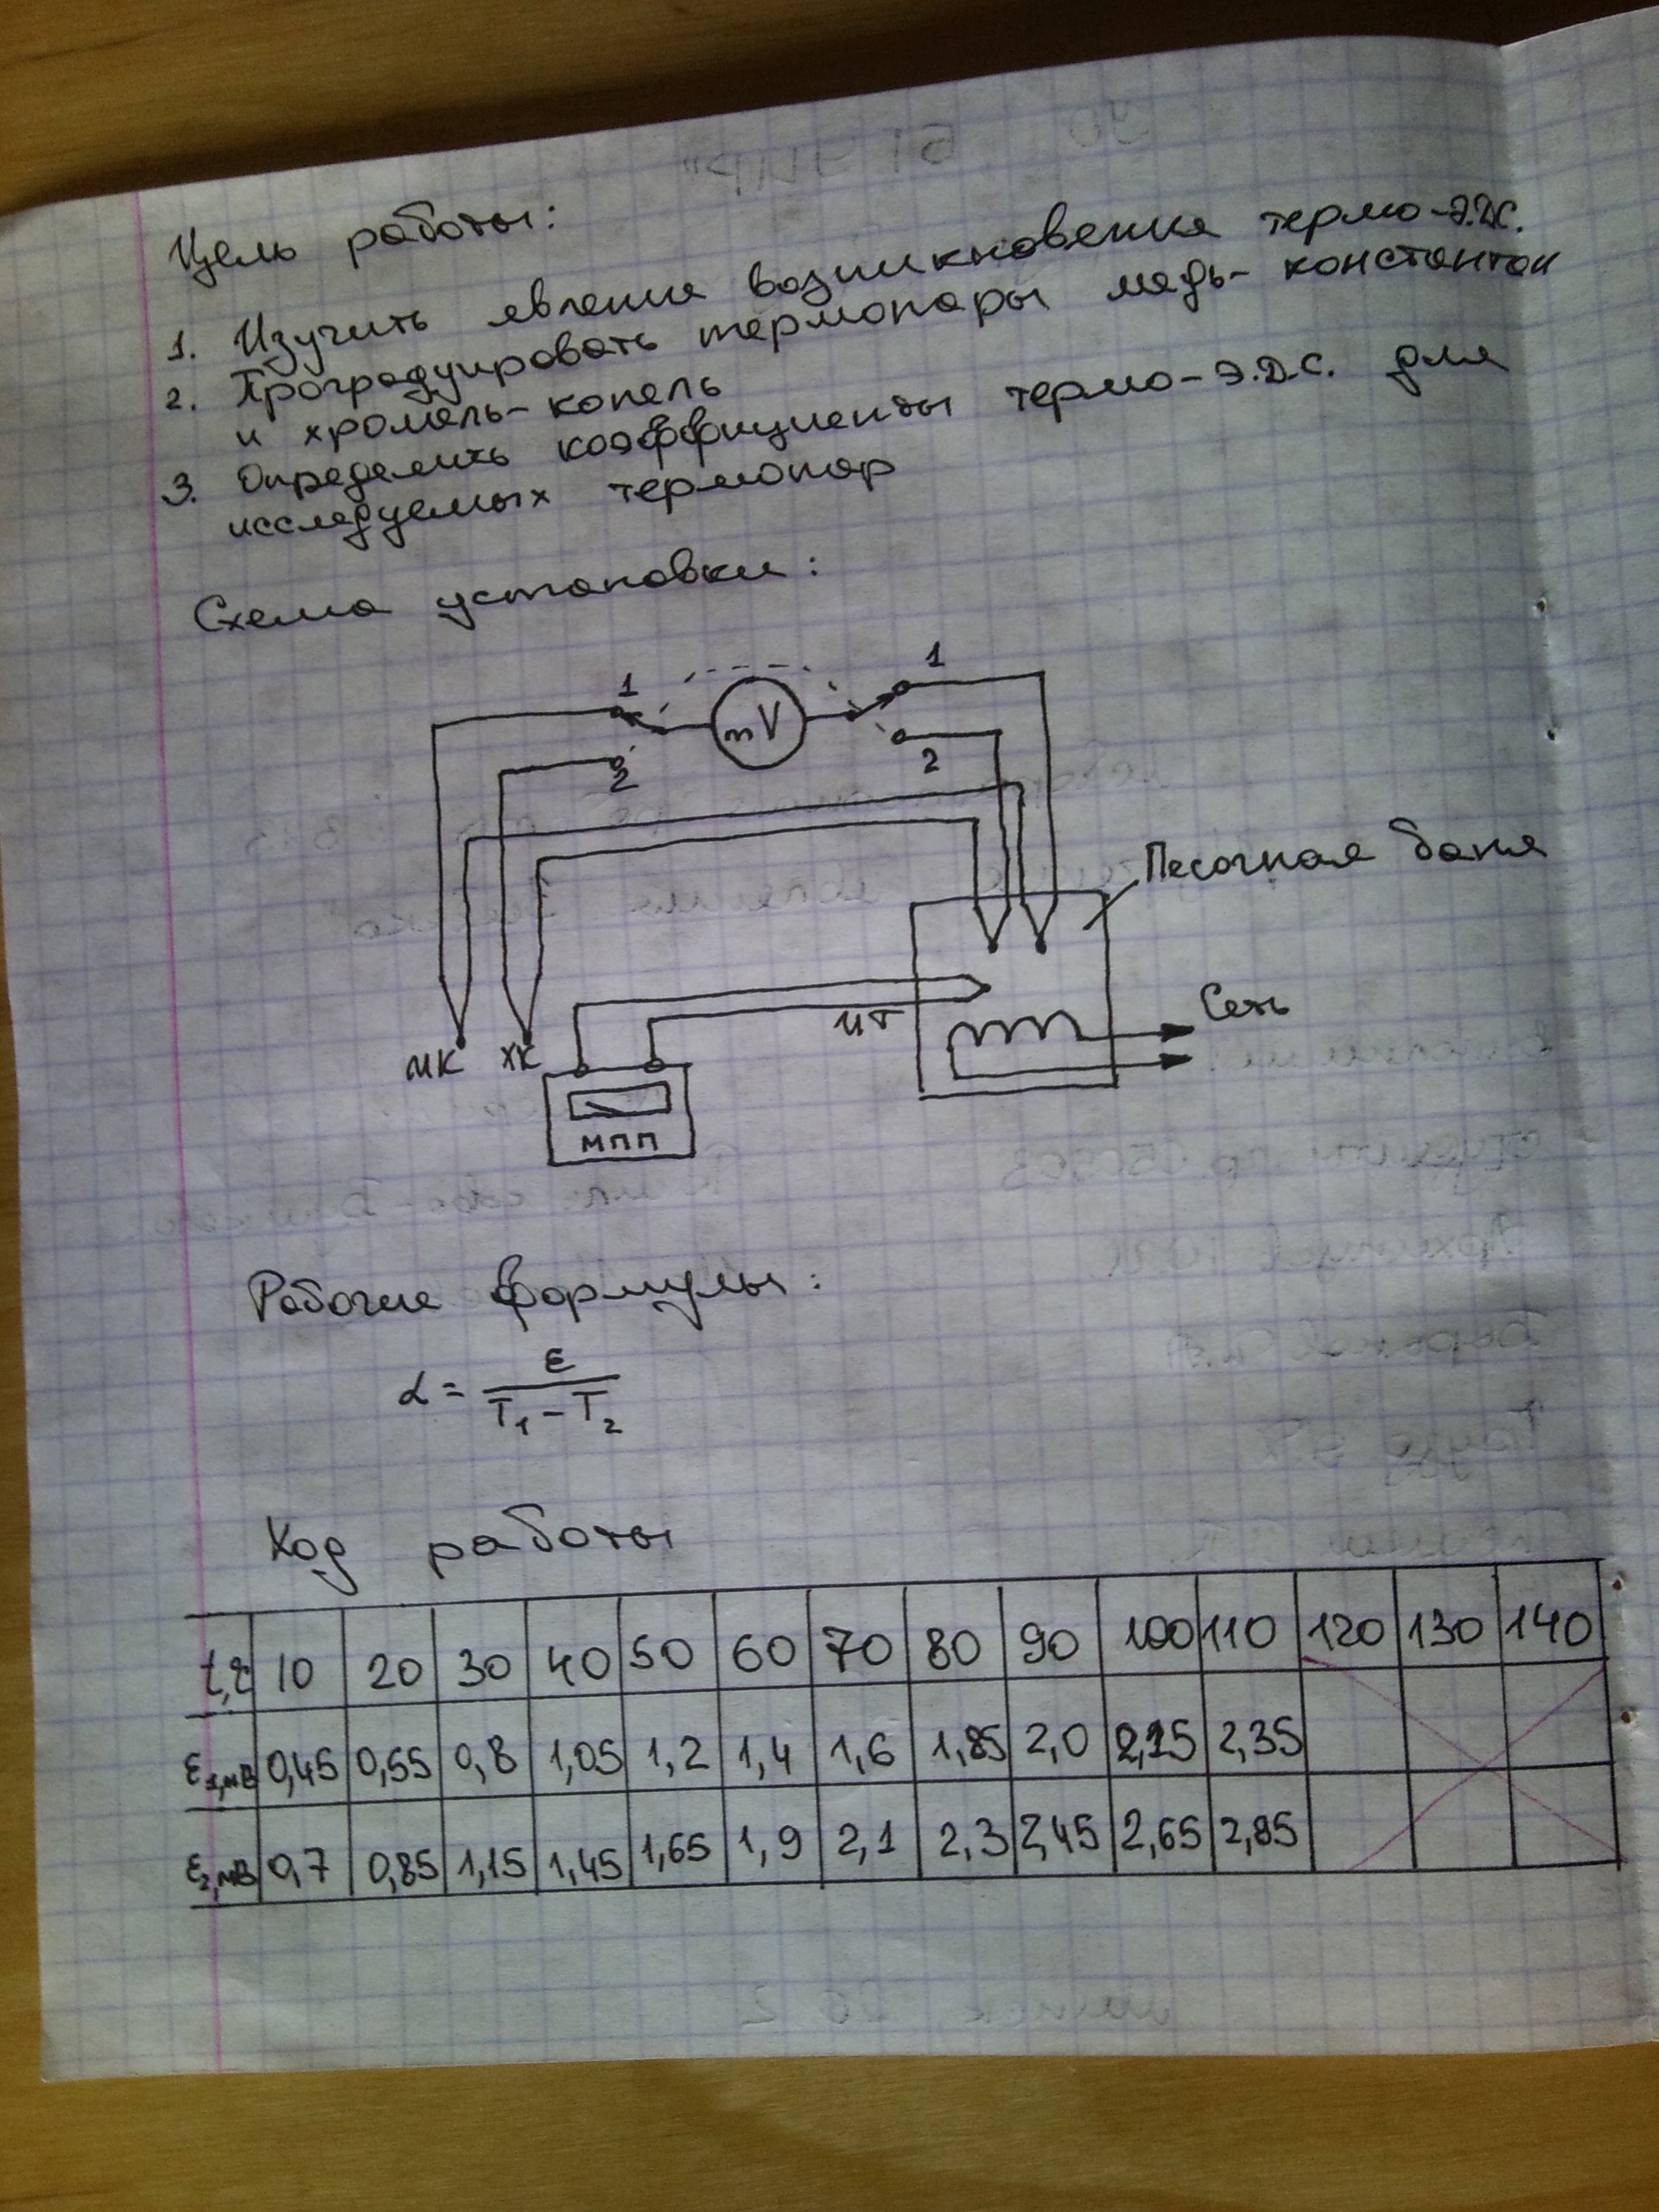 Цель работы:
1. Изучить явление возникновения термо-э.д.с.
2. Проградуировать термопары медь-константан
и хромель-копель
3. Определить коэффициенты термо-э.д.с. для
исследуемых термопар
Схема установки:
1 mV 1
2 2
Песочная баня
Сеть
ИТ
МК ХК
МПП
Рабочие формулы:
α = ε / (T₁ - T₂)
Ход работы
10 20 30 40 50 60 70 80 90 100 110 120 130 140
ε₁,мВ 0,45 0,55 0,8 1,05 1,2 1,4 1,6 1,85 2,0 2,35
ε₂,мВ 0,7 0,85 1,15 1,45 1,65 1,9 2,1 2,3 2,45 2,65 2,85